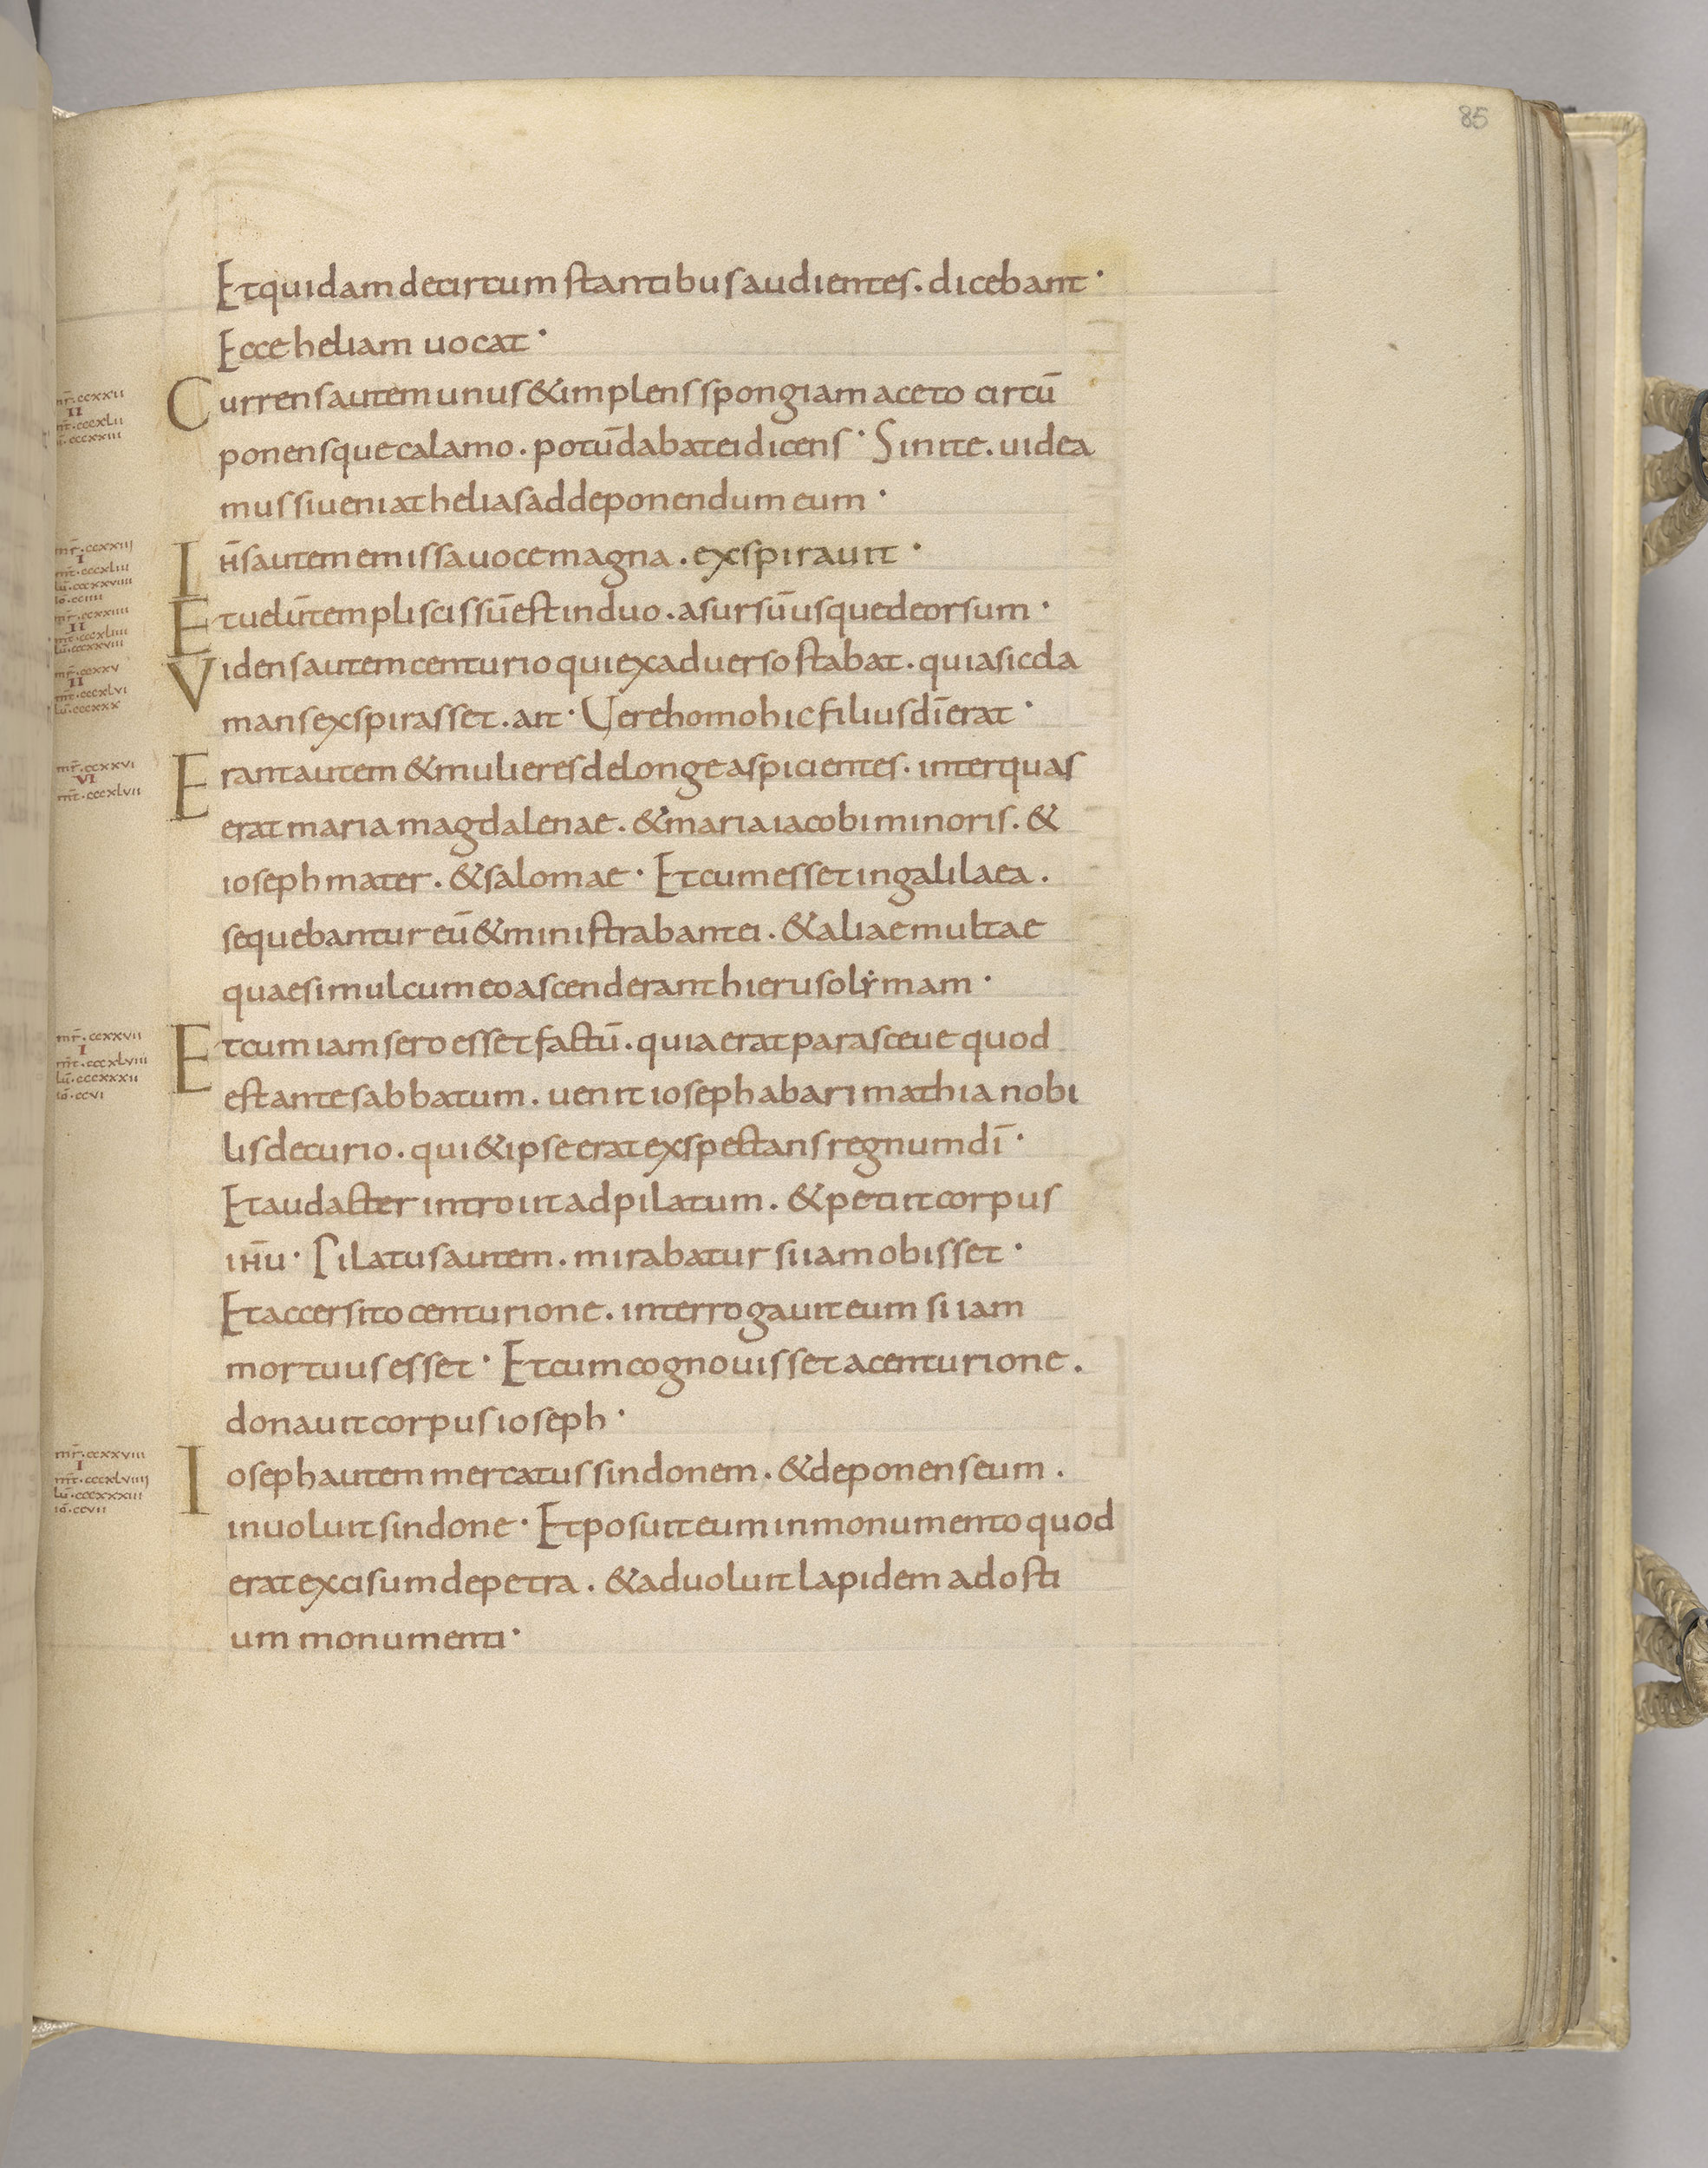 85
Et quidam de circum stantibus audientes. dicebant·
Ecce heliam uocat·
Currens autem unus & implens spongiam aceto circū
ponensque calamo. potū dabat ei dicens· Sinite. uidea
mus si ueniat helias ad deponendum eum·
mr̄·ccxxii
II
mt̄·cccxlii
lū·cccxxiii
Ihs̄ autem emissa uoce magna. exspirauit·
mr̄·ccxxiii
I
mt̄·cccxliii
lū·cccxxviiii
iō·cciiii
Et uelū templi scissū est in duo. a sursū usque deorsum·
mr̄·ccxxiiii
II
mt̄·cccxliiii
lū·cccxxviii
Videns autem centurio qui ex aduerso stabat. quia sic cla
mans exspirasset. ait· Uere homo hic filius dī erat·
mr̄·ccxxv
II
mt̄·cccxlvi
lū·cccxxx
Erant autem & mulieres de longe aspicientes. inter quas
erat maria magdalenae. & maria iacobi minoris. &
ioseph mater. & salomae· Et cum esset in galilaea.
sequebantur eū & ministrabant ei. & aliae multae
quae simul cum eo ascenderant hierusolẏmam·
mr̄·ccxxvi
VI
mt̄·cccxlvii
Et cum iam sero esset factū. quia erat parasceue quod
est ante sabbatum. uenit ioseph ab arimathia nobi
lis decurio. qui & ipse erat exspectans regnum dī·
Et audacter introiit ad pilatum. & petiit corpus
ihū· Pilatus autem. mirabatur si iam obisset·
Et accersito centurione. interrogauit eum si iam
mortuus esset· Et cum cognouisset a centurione.
donauit corpus ioseph·
mr̄·ccxxvii
I
mt̄·cccxlviii
lū·cccxxxii
iō·ccvi
Ioseph autem mercatus sindonem. & deponens eum.
inuoluit sindone· Et posuit eum in monumento quod
erat excisum de petra. & aduoluit lapidem ad osti
um monumenti·
mr̄·ccxxviii
I
mt̄·cccxlviiii
lū·cccxxxiii
iō·ccvii